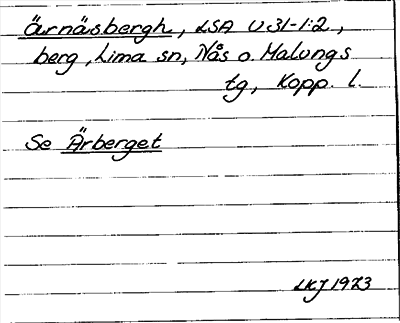 ärnäsbergh, LSA U31-1:2,
berg, Lima sn, Nås o. Malungs
tg, Kopp. l.
Se Ärberget
LKJ 1973